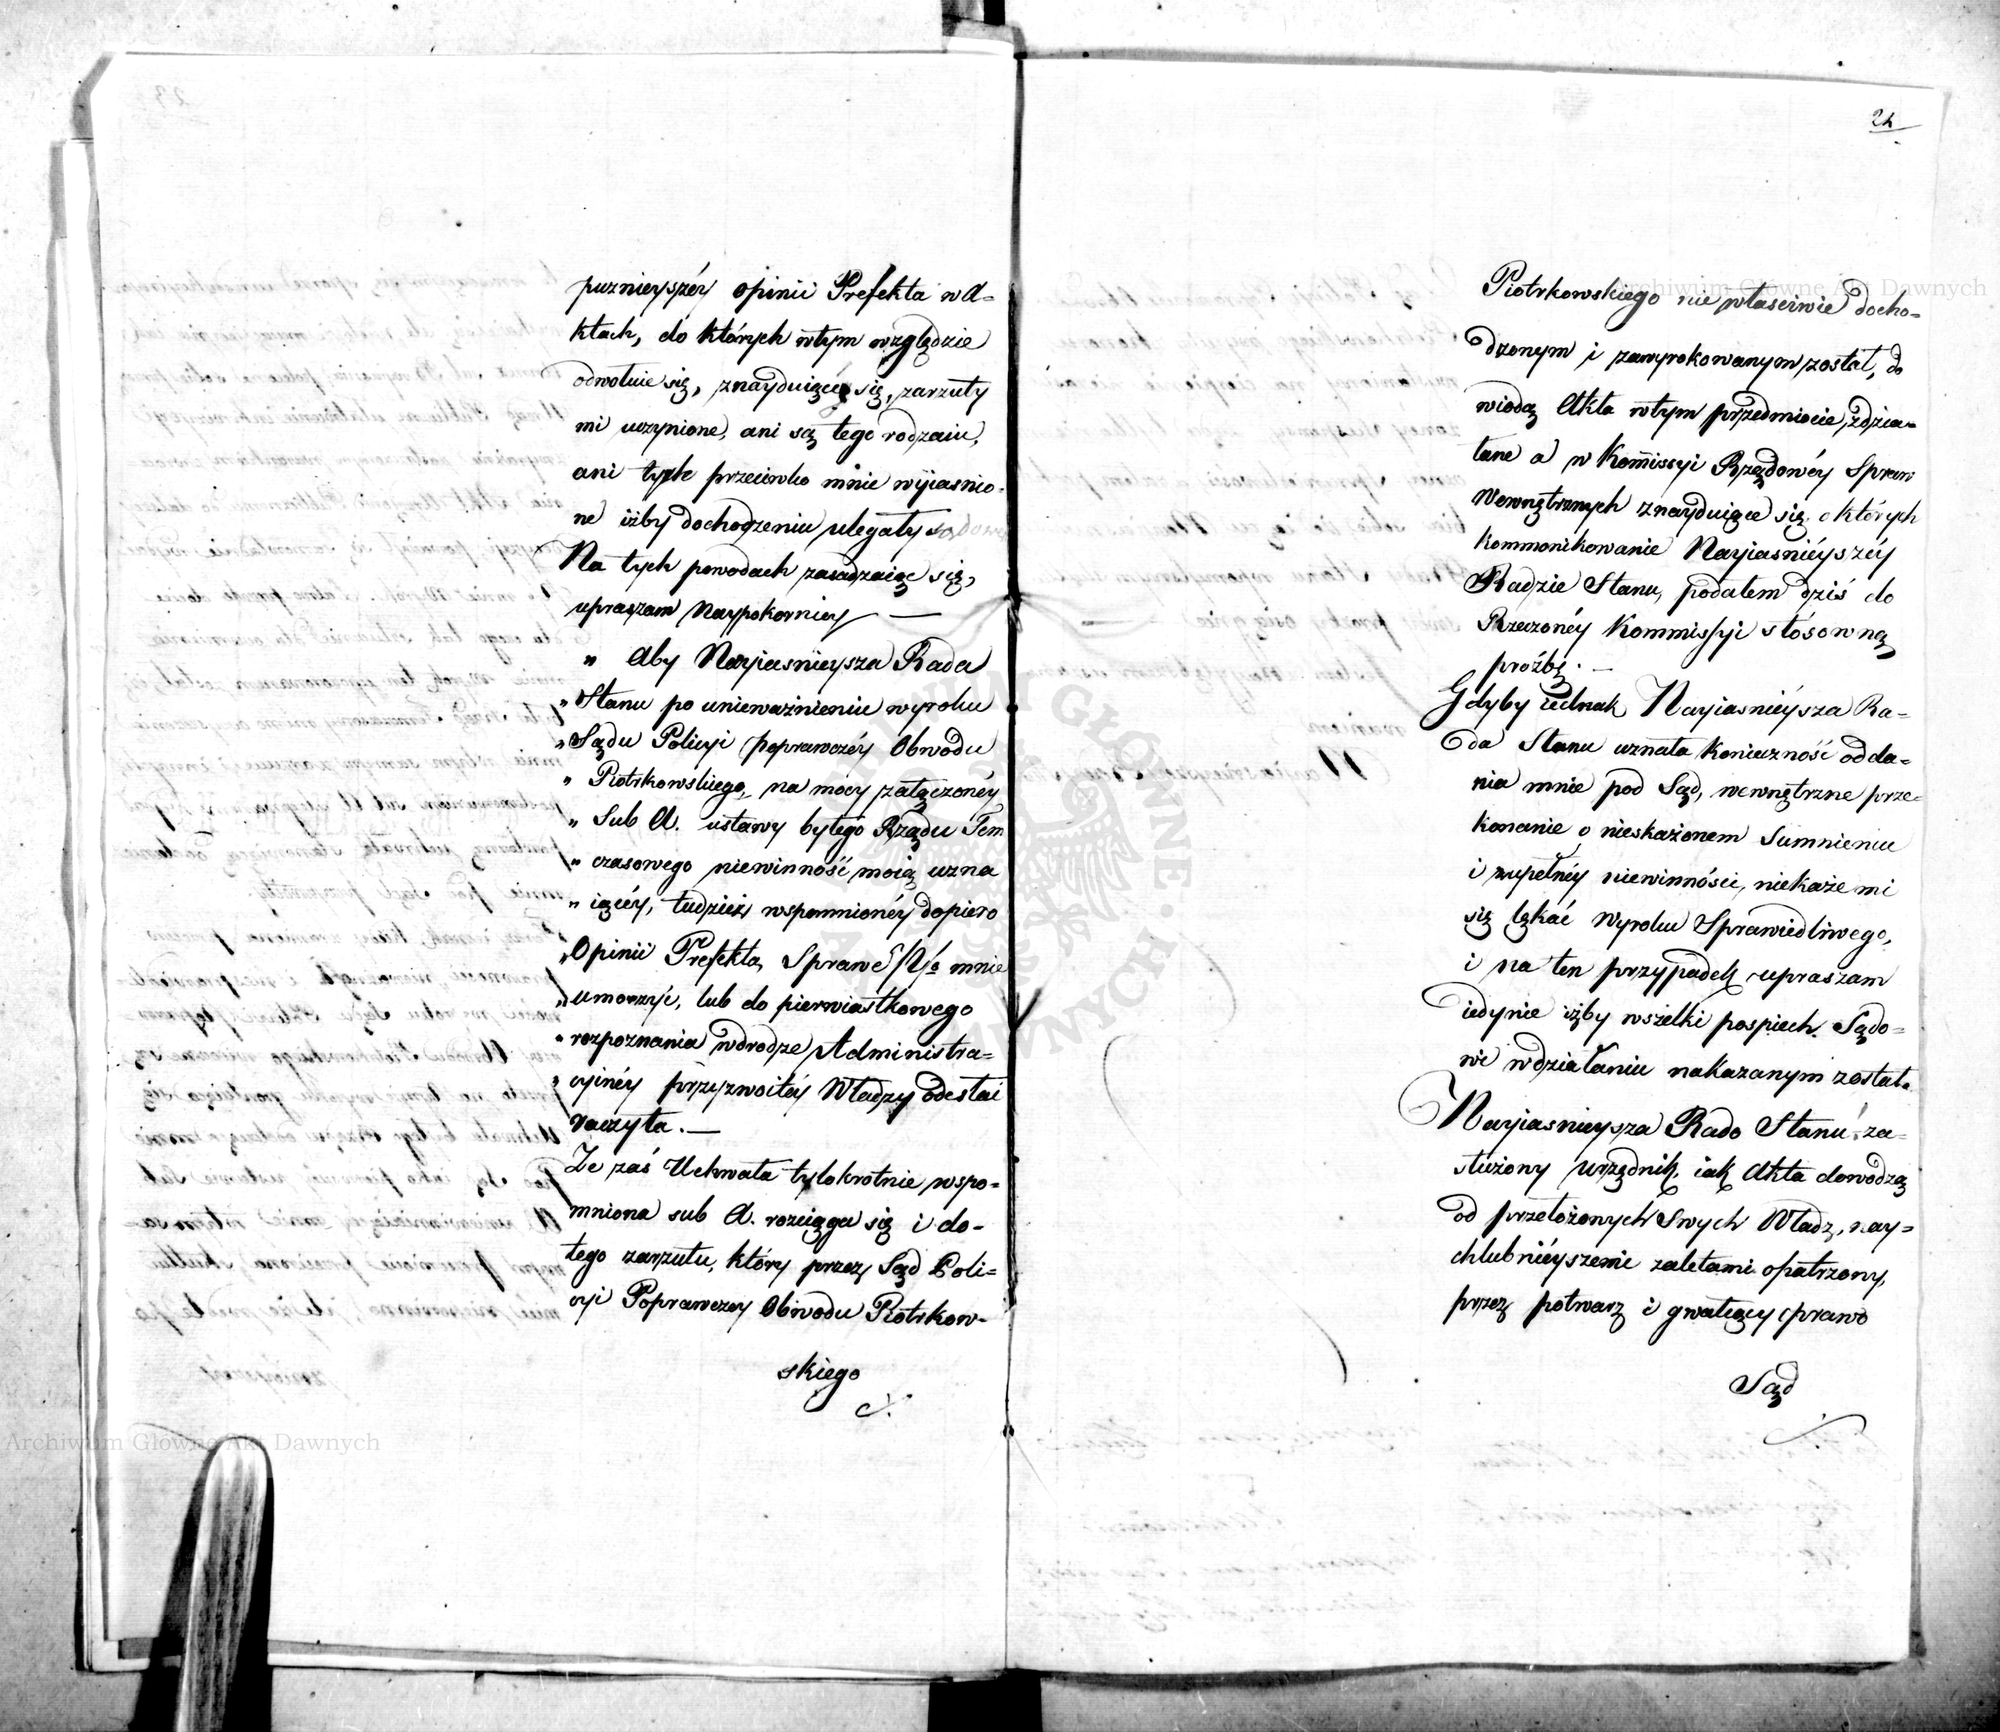 puznieyszéy opinii Prefekta w A-
ktach, do których wtym względzie
odwołuie się, znayduiącéy się, zarzuty
mi uczynione, ani są tego rodzaiu,
ani tyle przeciwko mnie wyiasnio-
ne iżby dochodzeniu ulegały sądowe
Na tych powodach zasadzaiąc się,
upraszam naypokorniey —
" Aby Nayiasnieysza Rada
" Stanu po unieważnieniu wyroku
" Sądu Policyi poprawczéy Obwodu
" Piotrkowskiego, na mocy załączonéy
" Sub A. ustawy byłego Rządu Tem
" czasowego niewinność moią uzna
" iącéy, tudzież wspomnionéy dopiero
" Opinii Prefekta, Sprawę mnie
" umorzyć, lub do pierwiastkowego
" rozpoznania wdrodze Administra-
" cyinéy przyzwoitéy Władzy odesłać
raczyła. —
Ze zaś Uchwała tylokrotnie wspo-
mniona sub A. rozciąga się i do-
tego zarzutu, który przez Sąd Poli-
cyi Poprawczey Obwodu Piotrkow-
skiego
24
Piotrkowskiego nie właściwie docho-
dzonym i zawyrokowanym został, do
wiodą Akta wtym przedmiocie, zdzia-
łane a w Kommissyi Rządowéy Spraw
Wewnętrznych znayduiące się, o których
kommonikowanie Nayiasniéyszéy
Radzie Stanu, podałem dziś do
Rzeczonéy Kommissyi stósowną
prożbę. —
Gdyby iednak Nayiasniéysza Ra-
da Stanu uznała konieczność odda-
nia mnie pod Sąd, wewnętrzne prze-
konanie o nieskażonem Sumnieniu
i zupełnéy niewinności, niekaże mi
się lękać Wyroku Sprawiedliwego,
i na ten przypadek upraszam
iedynie iżby wszelki pospiech Sądo-
wi wdziałaniu nakazanym został.
Nayiasnieysza Rado Stanu, za-
służony urzędnik, iak Akta dowodzą
od przełożonych Swych Władz, nay-
chlubniéyszemi zaletami opatrzony,
przez potwarz i gwałcący prawo
Sąd
Archiwum Główne Akt Dawnych
Archiwum Główne Akt Dawnych